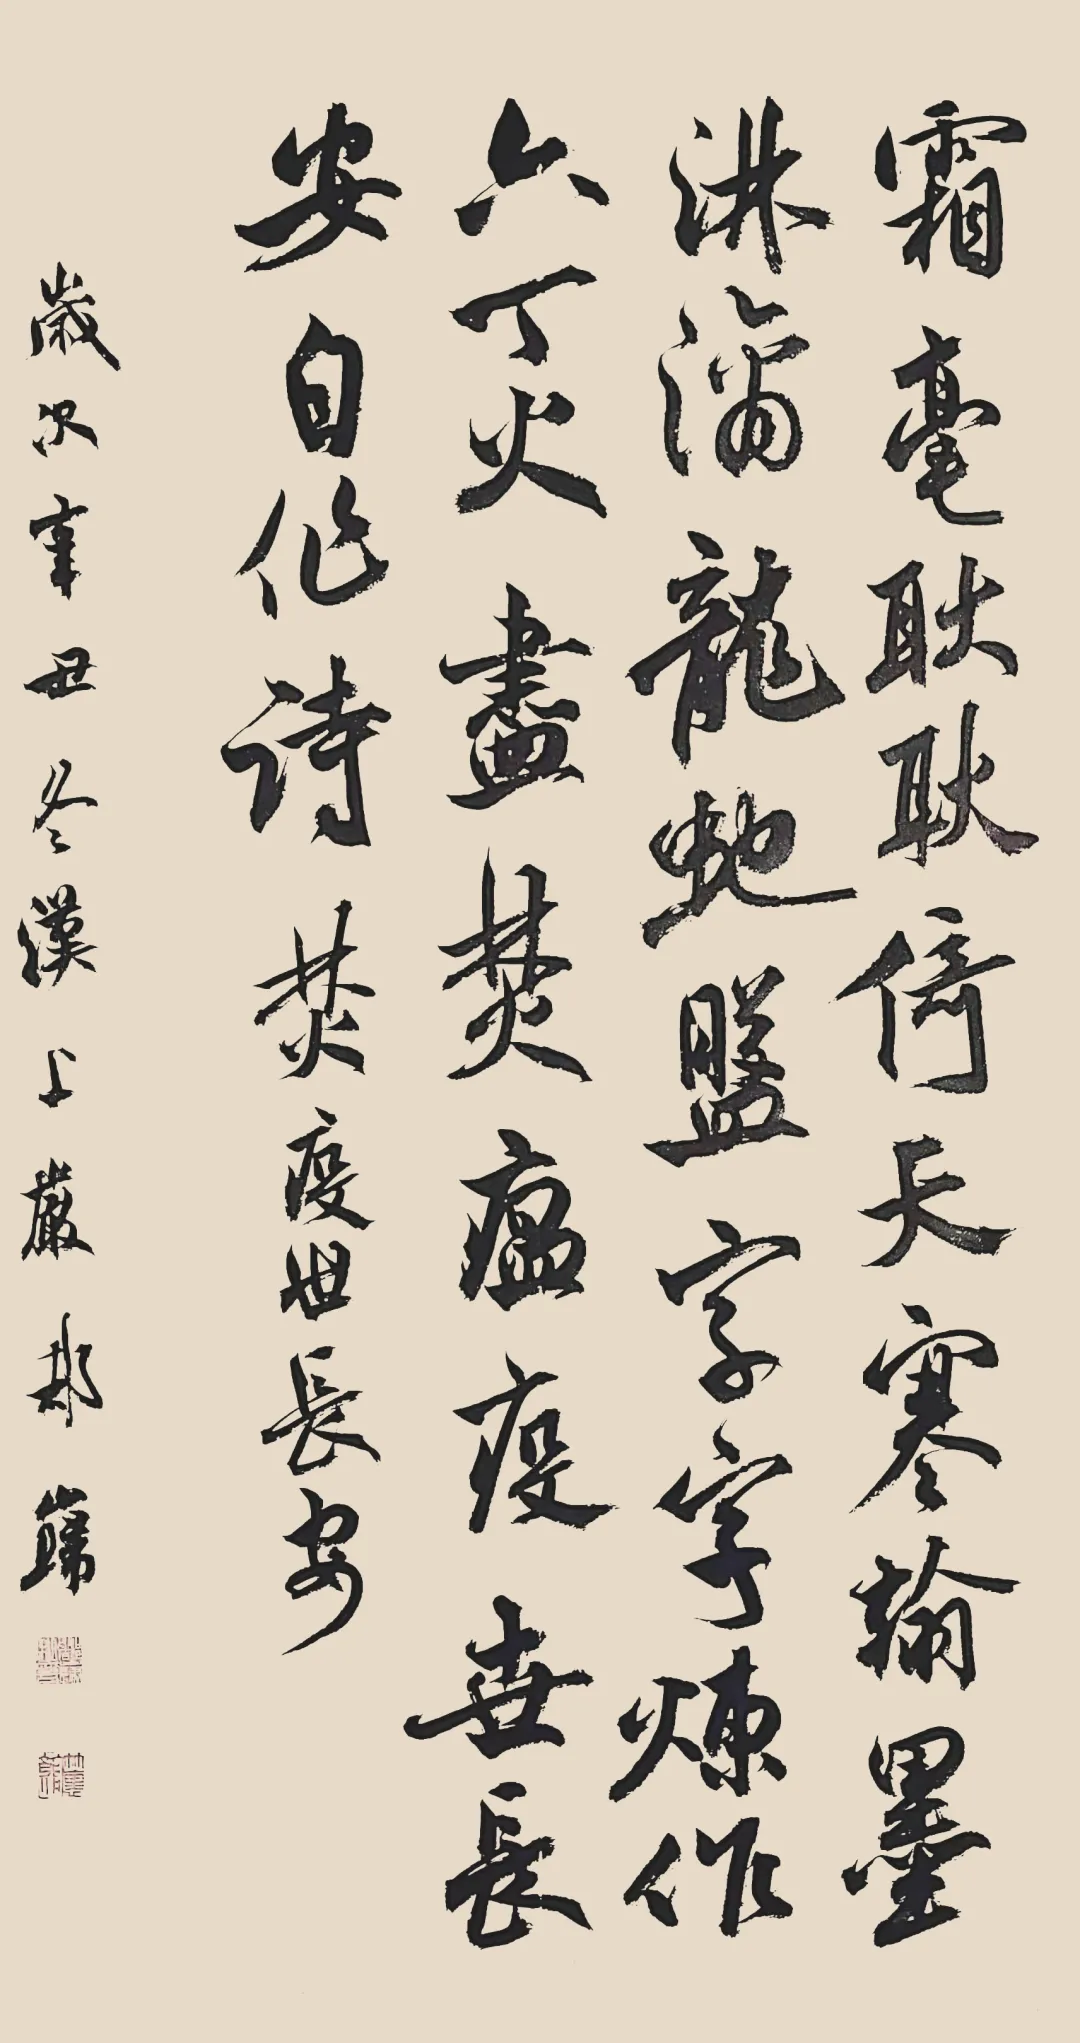 霜毫耿耿倚天寒翰墨
淋漓龍虵盤字字煉作
六丁火盡焚瘟疫世長
安自作詩焚疫世長安
歲次辛丑冬漢上嚴邦